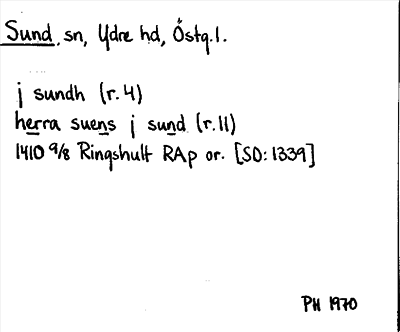 Sund, sn, Ydre hd, Östg.l.
j sundh (r.4)
herra suens j sund (r.11)
1410 9/8 Ringshult RAp or. [SD:1339]
PH 1970